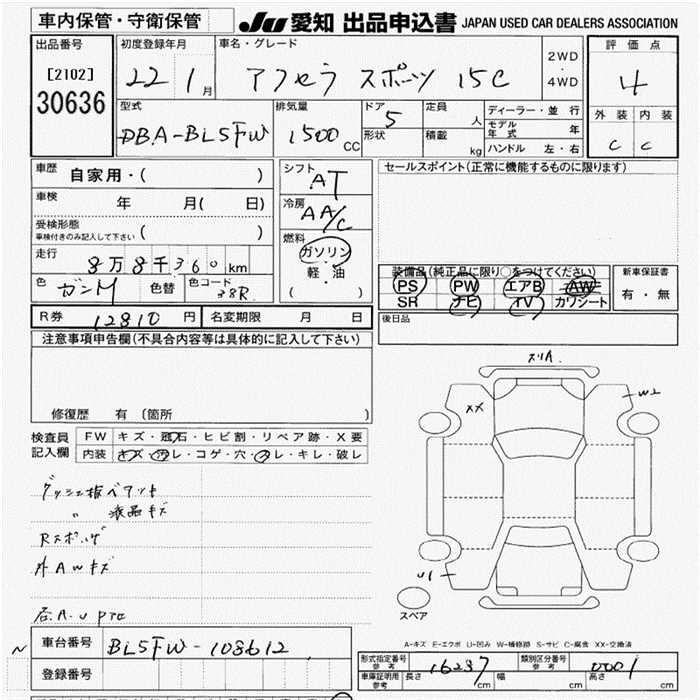 車内保管・守衛保管
JU 愛知 出品申込書 JAPAN USED CAR DEALERS ASSOCIATION
出品番号
[2102]
30636
初度登録年月
22 1月
車名・グレード
アクセラ スポーツ 15C
2WD・4WD
評価点
4
外装 内装
C C
型式
DBA-BL5FW
排気量
1500CC
ドア
5
形状
定員 人
積載 kg
ディーラー・並行
モデル年式 年
ハンドル 左・右
車歴
自家用・( )
車検
年 月( 日)
受検形態
車検付きのみ記入して下さい ( )
走行
8万8千360km
色 ガンM 色替 色コード 38R
シフト
AT
冷房
AA/C
燃料
ガソリン
軽・油
( )
セールスポイント(正常に機能するものに限ります)
装備品(純正品に限り○をつけてください)
PS PW エアB AW
SR ナビ TV カワシート
新車保証書
有・無
後日品
R券 12810円 名変期限 月 日
注意事項申告欄(不具合内容等は具体的に記入して下さい)
修復歴 有 〔箇所 〕
検査員記入欄
FW キズ・飛石・ヒビ割・リペア跡・X要
内装 キズ・汚レ・コゲ・穴・スレ・キレ・破レ
〃 液晶キズ
外AWキズ
スリA
XX
W2
U1
スペア
A-キズ E-エクボ U-凹み W-補修跡 S-サビ C-腐食 XX-交換済
車台番号 BL5FW-108612
登録番号
形式指定番号 参考 16287
類別区分番号 参考 0001
車庫証明用 参考 長さ cm 幅 cm 高さ cm